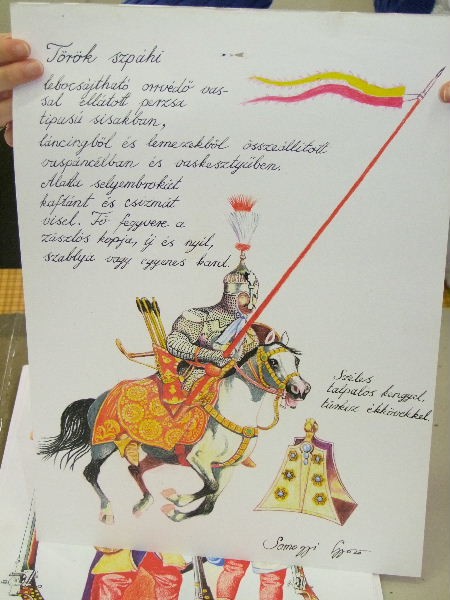 Török szpáhi
lebocsájtható orrvédő vas-
sal ellátott perzsa
típusú sisakban,
láncingből és lemezekből összeállított
vaspáncélban és vaskesztyűben.
Alatta selyembrokát
kaftánt és csizmát
visel. Fő fegyvere a
zászlós kopja, íj és nyíl,
szablya vagy egyenes kard.
Széles
talpalós kengyel,
türkiz ékkövekkel.
Somogyi Győző